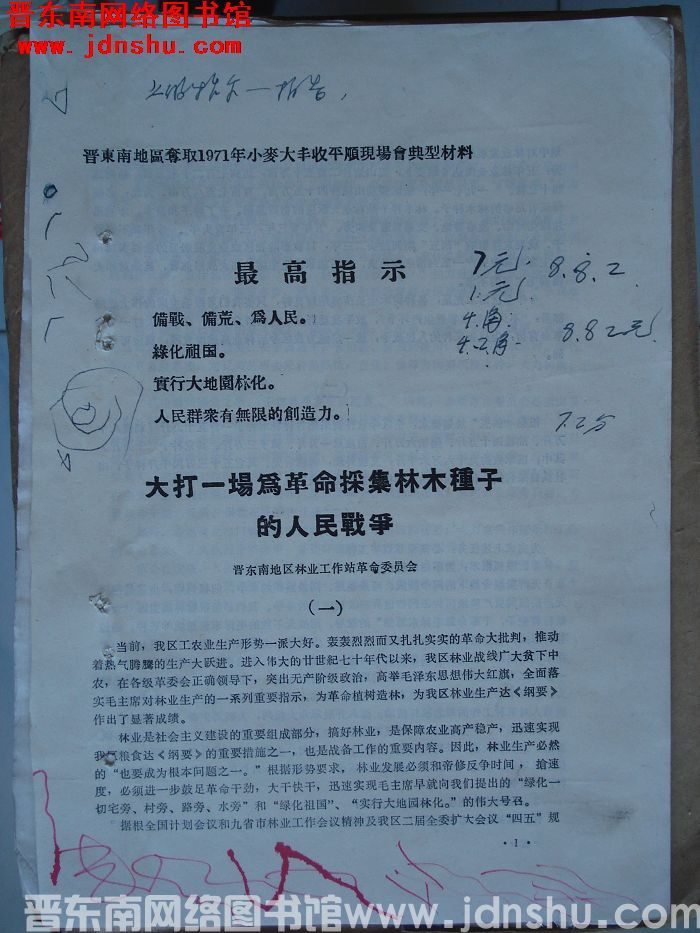 晋东南网络图书馆
www.jdnshu.com
晋東南地區奪取1971年小麥大丰收平順現場會典型材料
最高指示
7元 8.8.2
1.元
備戰、備荒、爲人民。
4.角
8.82元
綠化祖国。
實行大地園林化。
人民群衆有無限的創造力。
7.2分
大打一場爲革命採集林木種子
的人民戰爭
晋东南地区林业工作站革命委员会
(一)
当前，我区工农业生产形势一派大好。轰轰烈烈而又扎扎实实的革命大批判，推动
着热气腾腾的生产大跃进。进入伟大的廿世纪七十年代以来，我区林业战线广大贫下中
农，在各级革委会正确领导下，突出无产阶级政治，高举毛泽东思想伟大红旗，全面落
实毛主席对林业生产的一系列重要指示，为革命植树造林，为我区林业生产达《纲要》
作出了显著成绩。
林业是社会主义建设的重要组成部分，搞好林业，是保障农业高产稳产，迅速实现
我区粮食达《纲要》的重要措施之一，也是战备工作的重要内容。因此，林业生产必然
的“也要成为根本问题之一。”根据形势要求，林业发展必须和帝修反争时间，抢速
度，必须进一步鼓足革命干劲，大干快干，迅速实现毛主席早就向我们提出的“绿化一
切宅旁、村旁、路旁、水旁”和“绿化祖国”、“实行大地园林化。”的伟大号召。
据根全国计划会议和九省市林业工作会议精神及我区二届全委扩大会议“四五”规
·1·
晋东南网络图书馆www.jdnshu.com